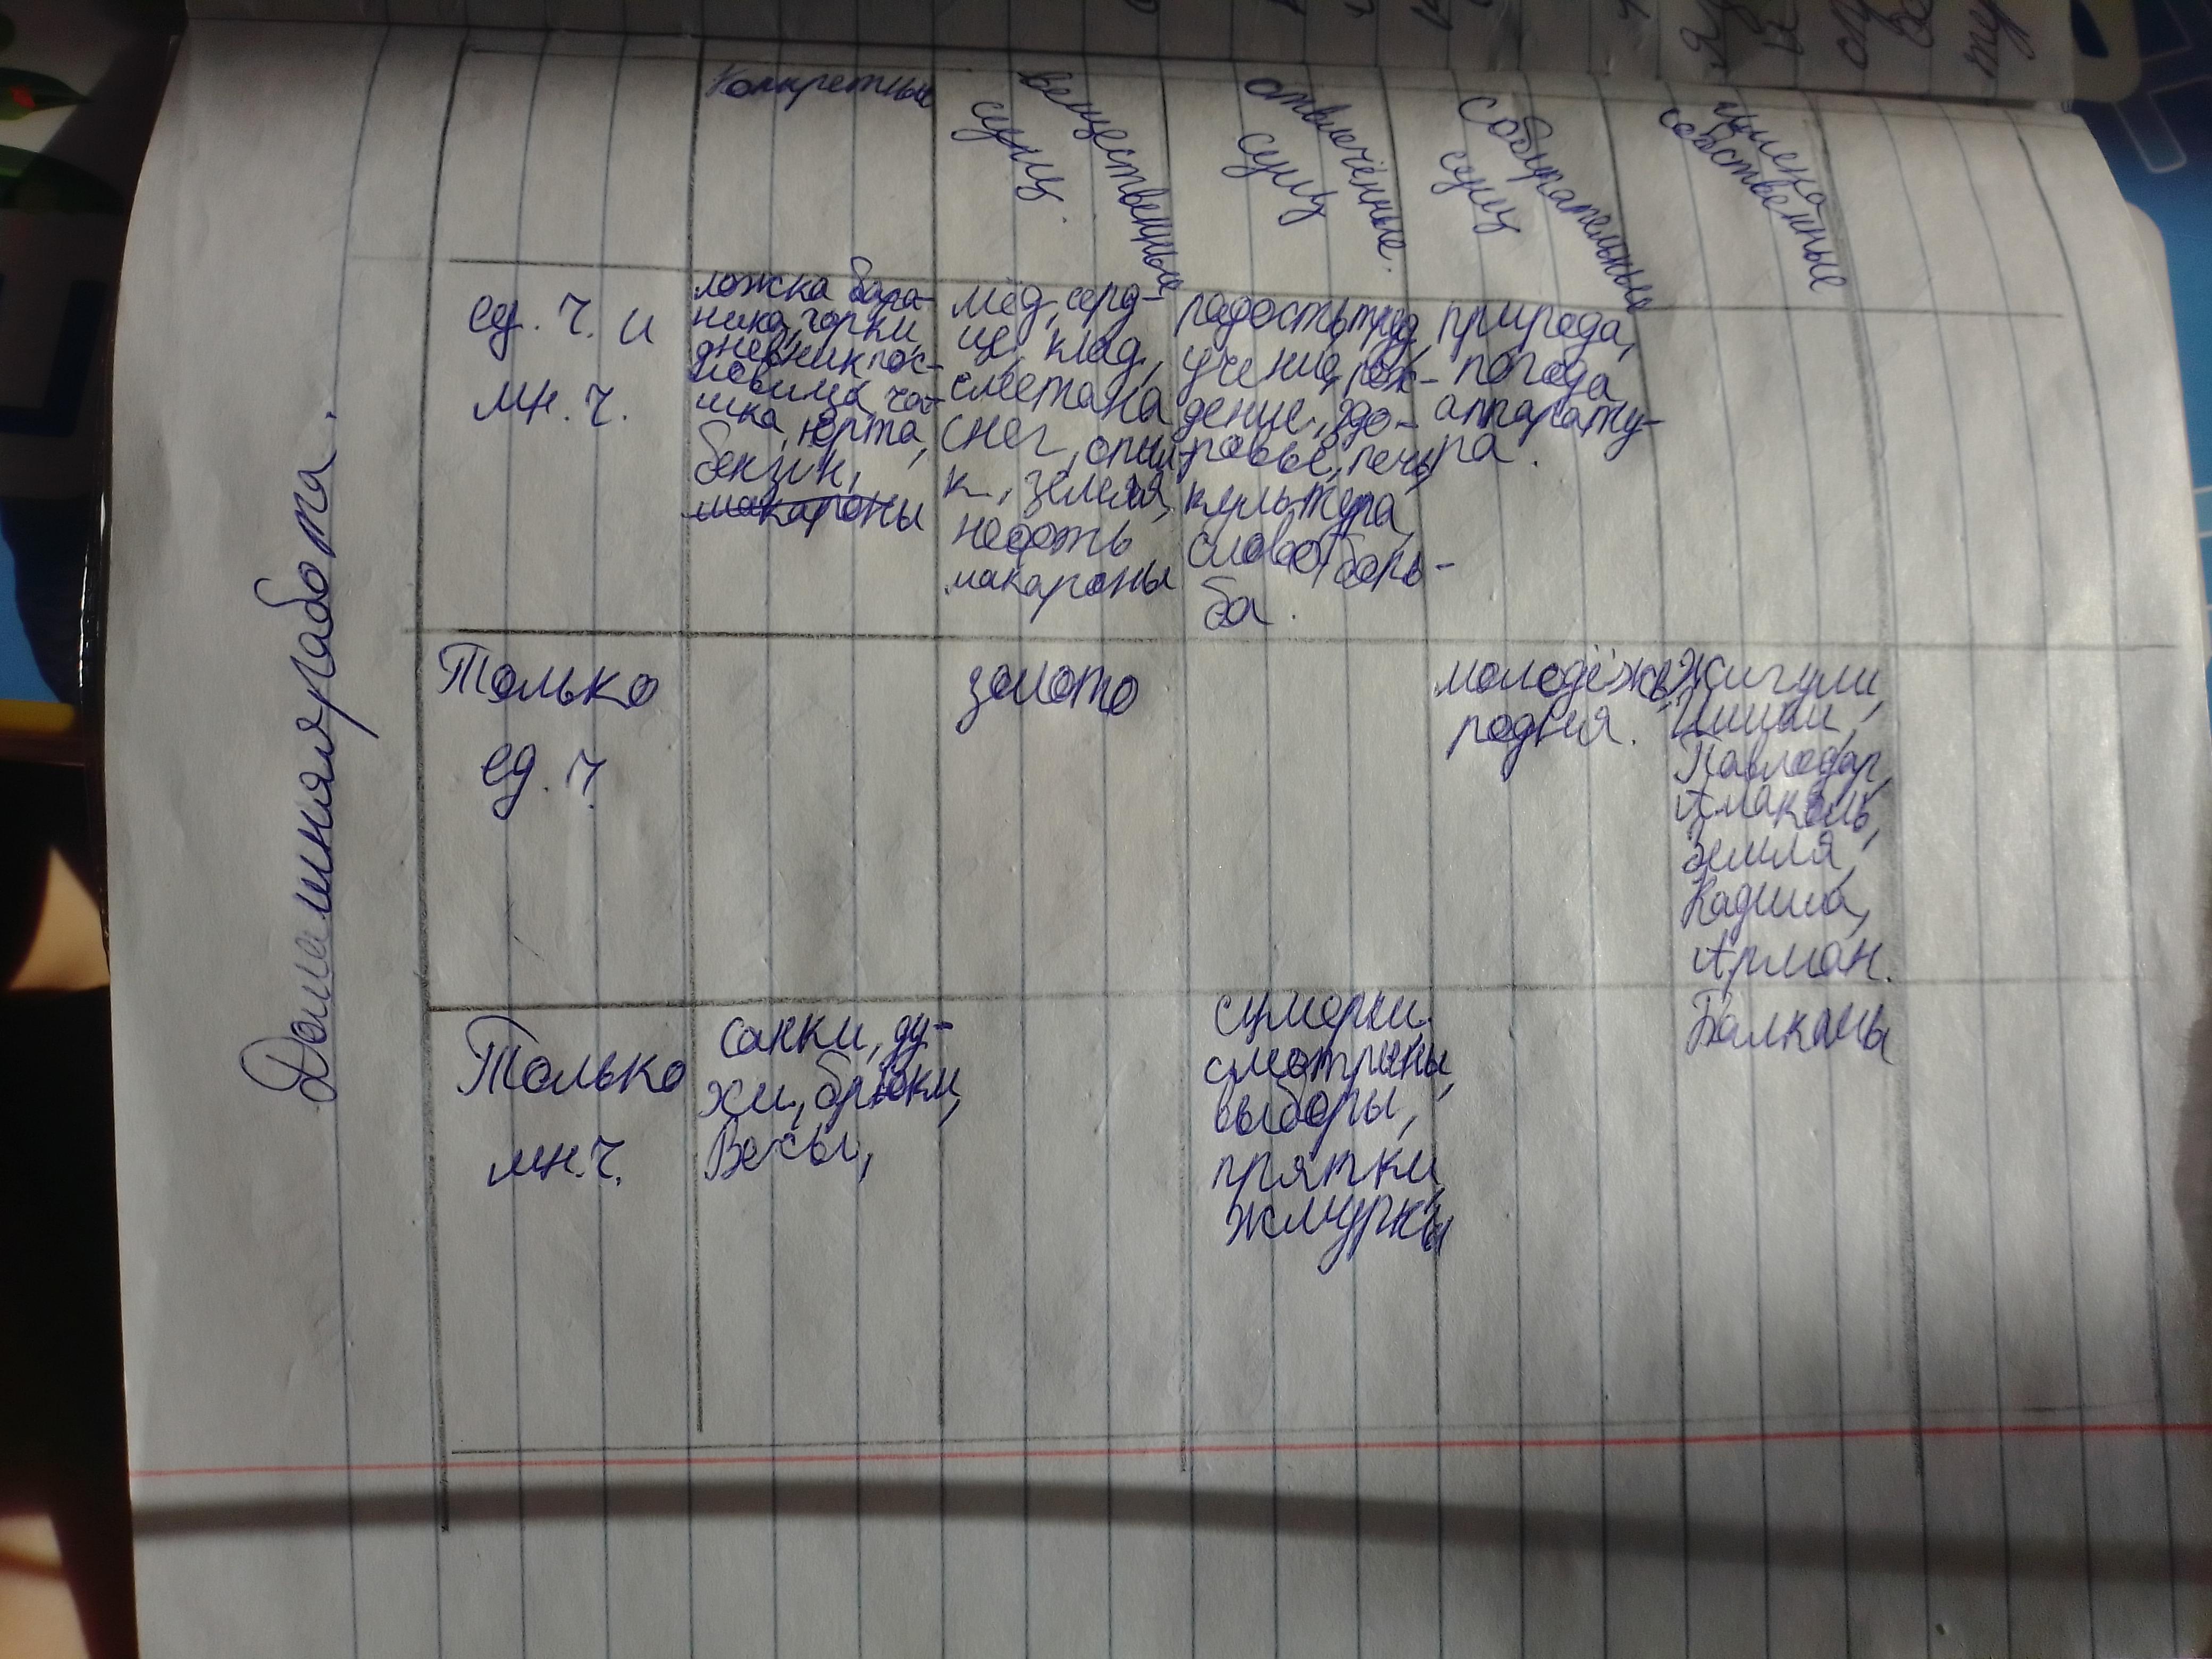 Домашняя работа.
Конкретные
вещественные
сущ.
отвлечённые.
сущ
Собирательные
сущ
Имена
собственные
ед. ч. и
мн. ч.
ложка бара-
ника, горки,
дневник пос-
ловица, ча-
шка, юрта,
бензин,
макароны
мёд, серд-
це, клад,
сметана
снег, опил-
к, земля,
нефть
макароны
радость, труд,
учение, рож-
дение, здо-
ровье, печь,
культура,
слово, борь-
ба.
природа,
погода
аппарату-
ра.
Только
ед. ч.
золото
молодёжь,
родня.
Жигули,
Ишим,
Павлодар,
Алаколь,
Земля,
Кадиша,
Арман.
Только
мн. ч.
санки, ду-
хи, брюки,
Весы,
сумерки.
смотрины,
выборы,
прятки,
жмурки
Балканы